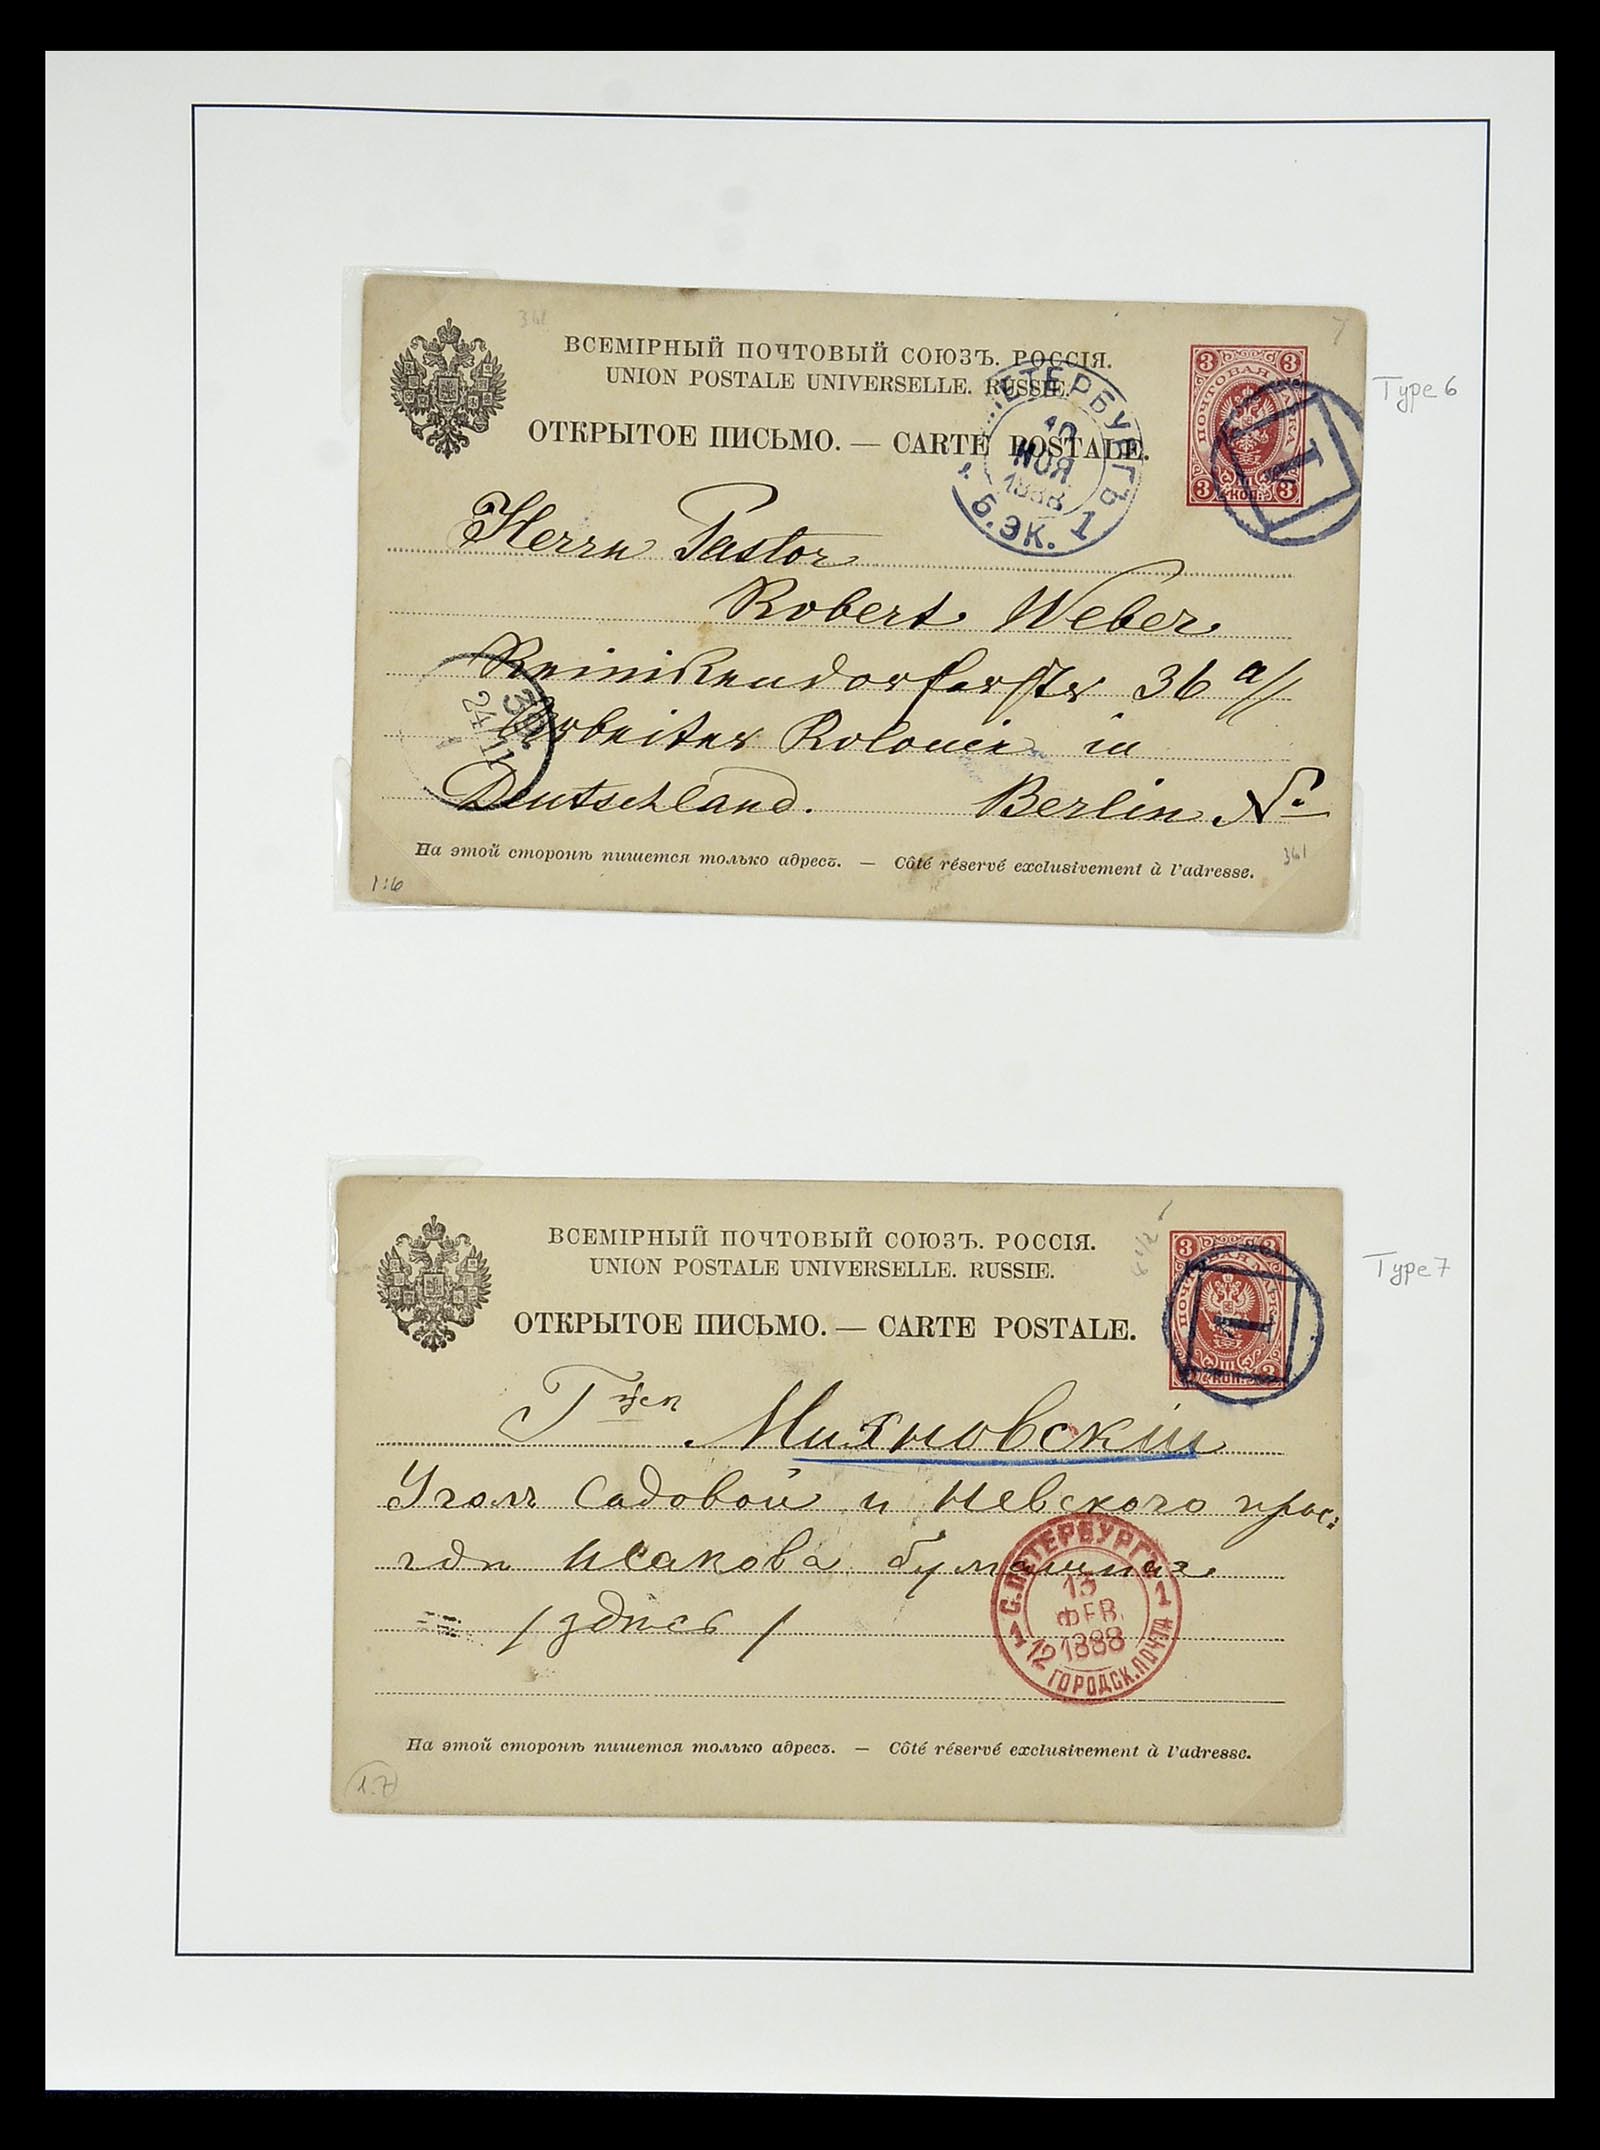 361
7
ВСЕМІРНЫЙ ПОЧТОВЫЙ СОЮЗЪ. РОССІЯ.
UNION POSTALE UNIVERSELLE. RUSSIE.
ОТКРЫТОЕ ПИСЬМО. — CARTE POSTALE.
3 3
ПОЧТОВАЯ МАРКА
3 КОП. 3
1
Type 6
ПЕТЕРБУРГЪ
НОЯ
1888
Б.ЭК. 1
Herrn Pastor
Robert Weber
Reinikendorferstr 36 a/
Arbeiter Kolonie in
Deutschland. Berlin N.
24 11
На этой сторонѣ пишется только адресъ. — Côté réservé exclusivement à l'adresse.
1:6
361
ВСЕМІРНЫЙ ПОЧТОВЫЙ СОЮЗЪ. РОССІЯ.
UNION POSTALE UNIVERSELLE. RUSSIE.
ОТКРЫТОЕ ПИСЬМО. — CARTE POSTALE.
3 3
1
Type 7
Мияновскій
Уголъ Садовой и Невского прос:
Исакова
/здись/
С.ПЕТЕРБУРГЪ
13
ФЕВ.
12 1888
1 1
ГОРОДСК.ПОЧТА
На этой сторонѣ пишется только адресъ. — Côté réservé exclusivement à l'adresse.
1.7